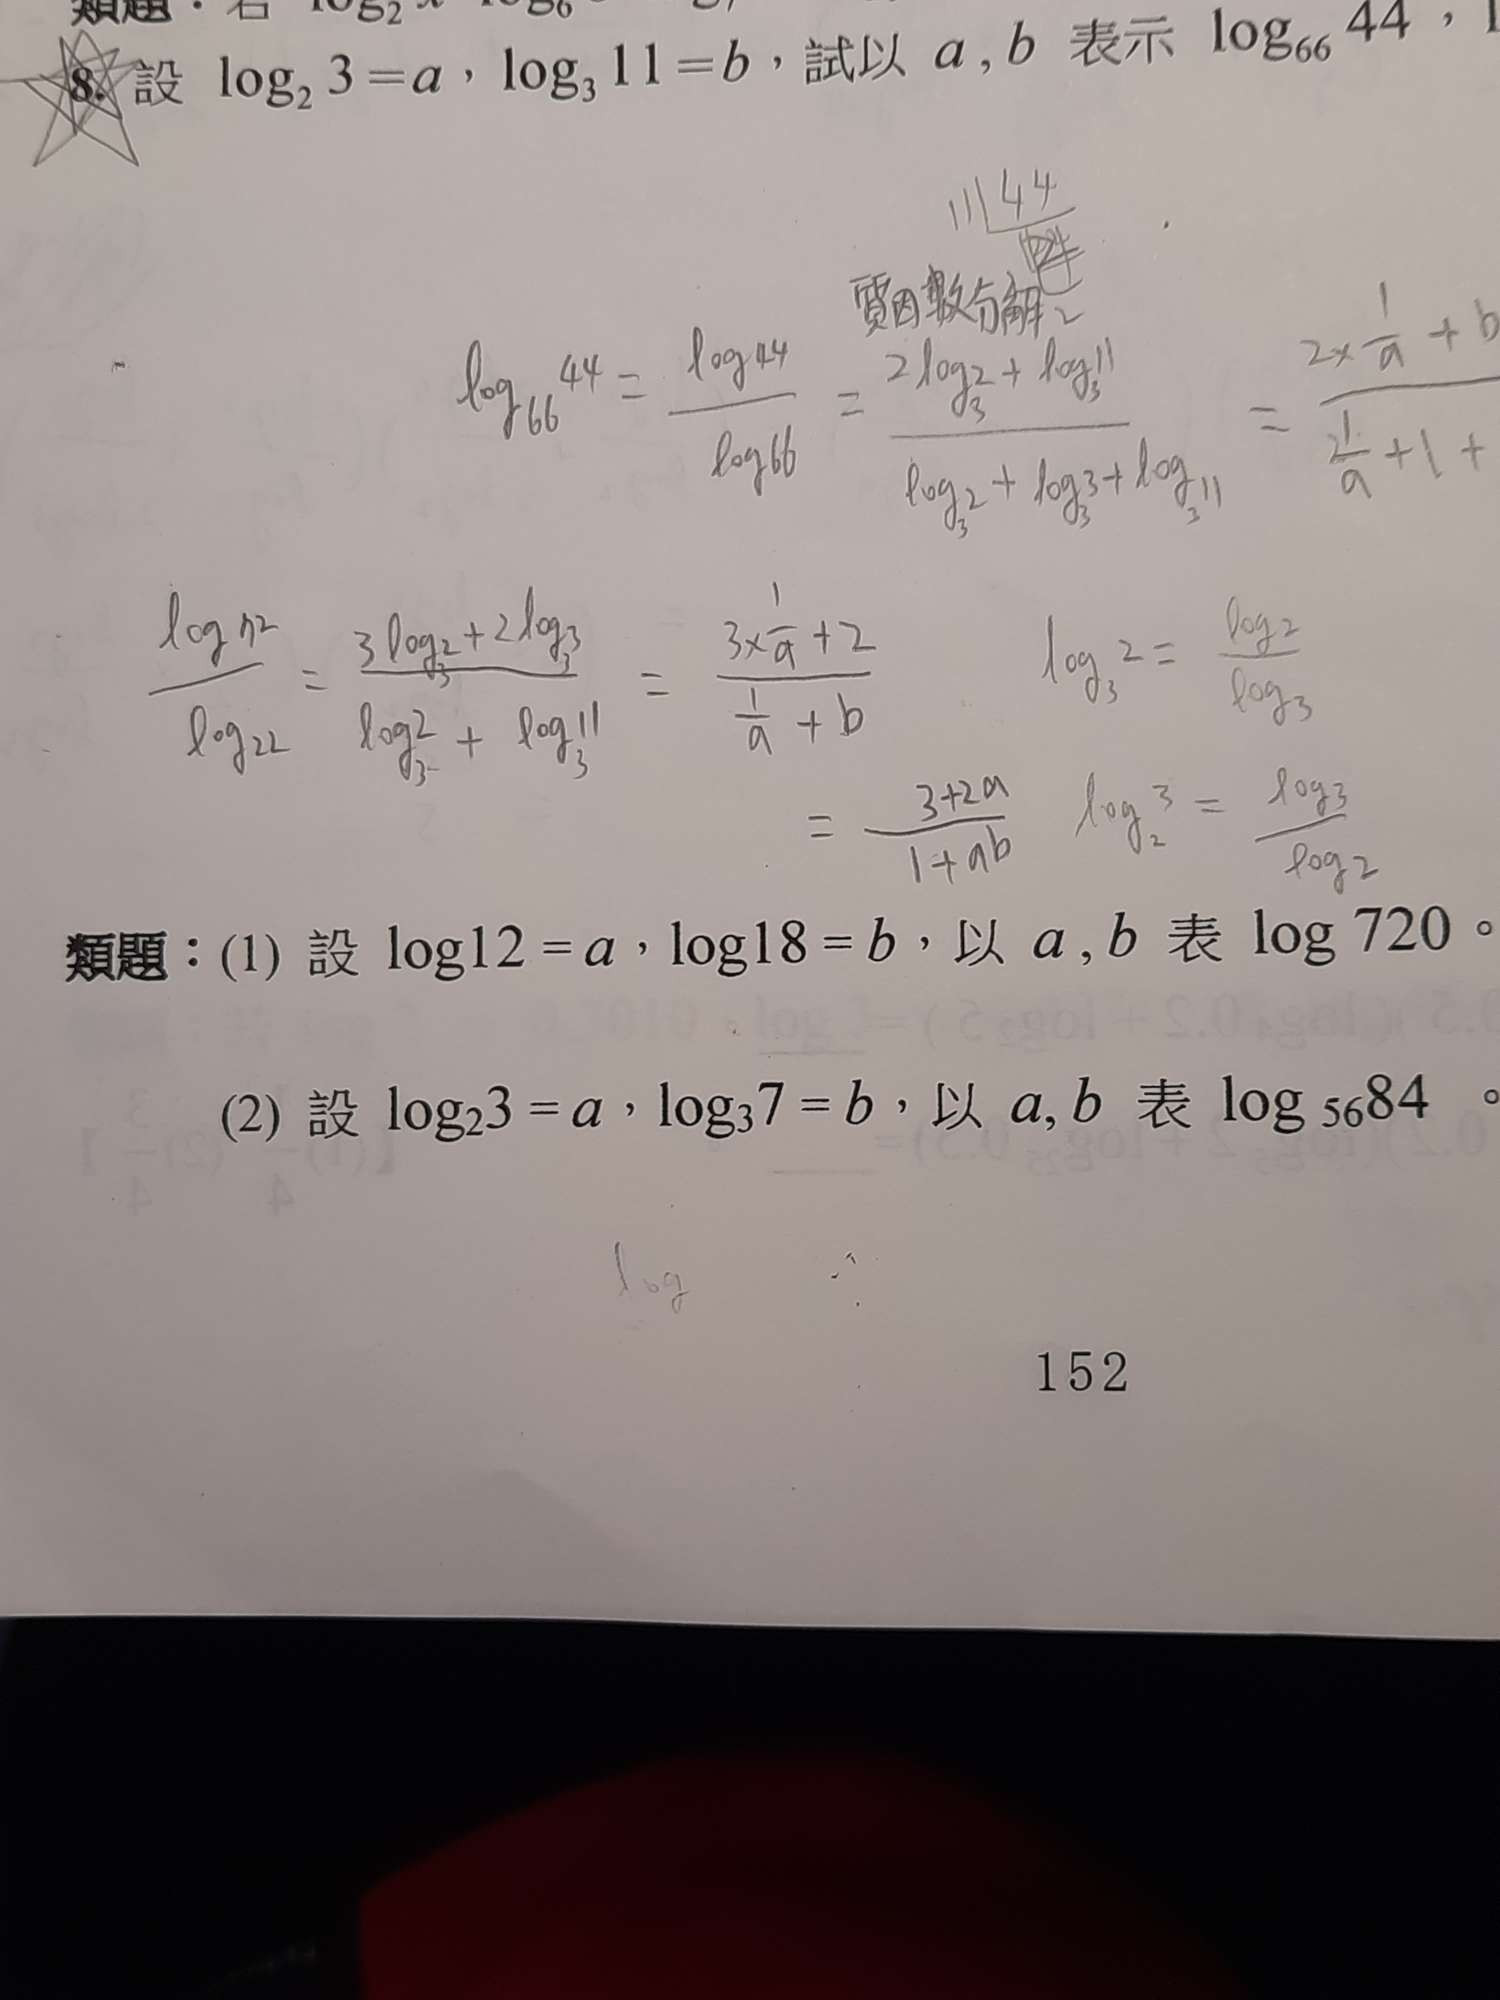 8. 設 log₂ 3 = a，log₃ 11 = b，試以 a , b 表示 log₆₆ 44，
11 44
質因數分解
log₆₆ 44 = log44 / log66 = (2log₃2 + log₃11) / (log₃2 + log₃3 + log₃11) = (2×1/a + b) / (1/a + 1 +
log72 / log22 = (3log₃2 + 2log₃3) / (log₃2 + log₃11) = (3×1/a + 2) / (1/a + b)
log₃2 = log2 / log3
= (3+2a) / (1+ab)
log₂3 = log3 / log2
類題：(1) 設 log12 = a，log18 = b，以 a , b 表 log 720。
(2) 設 log₂3 = a，log₃7 = b，以 a, b 表 log ₅₆84 。
log
152